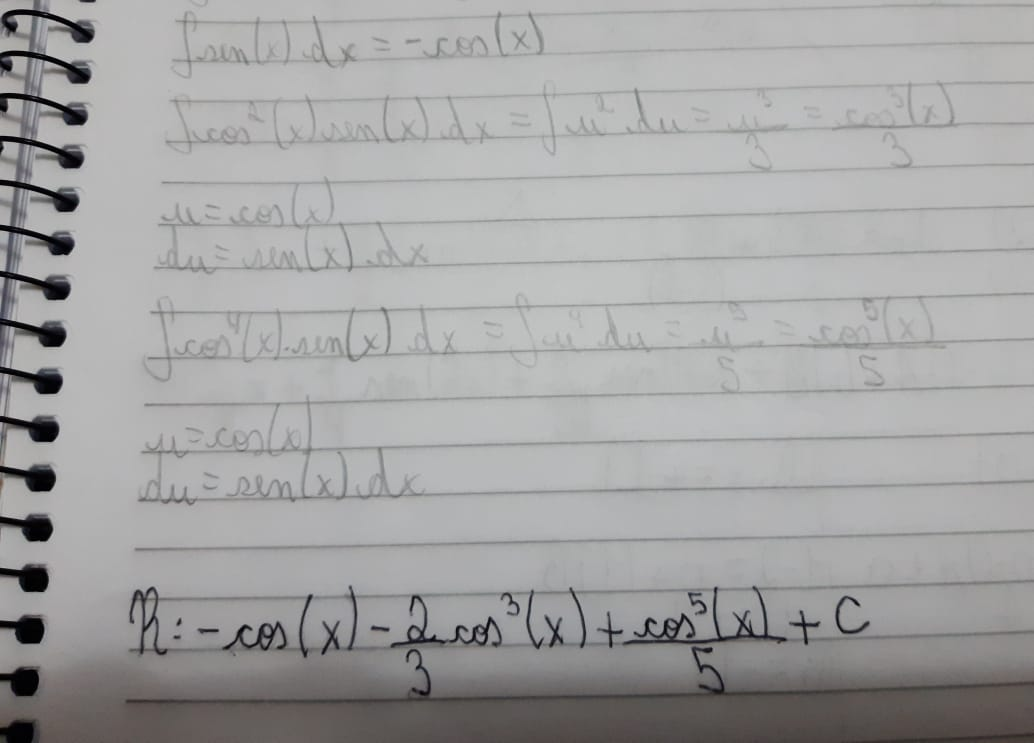 ∫sen(x).dx = -cos(x)
∫cos²(x).sen(x).dx = ∫u².du = u³/3 = cos³(x)/3
u = cos(x)
du = sen(x).dx
∫cos⁴(x).sen(x).dx = ∫u⁴.du = u⁵/5 = cos⁵(x)/5
u = cos(x)
du = sen(x).dx
R: -cos(x) - 2/3 cos³(x) + cos⁵(x)/5 + C